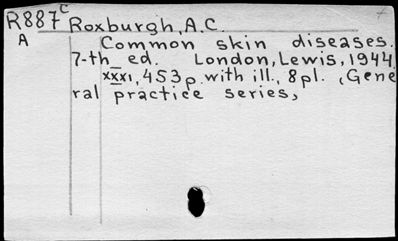 R887c Roxburgh, A.C.
A Common skin diseases.
7-th ed. London, Lewis, 1944
xxxi, 453p. with ill., 8pl. (Gene
ral practice series,